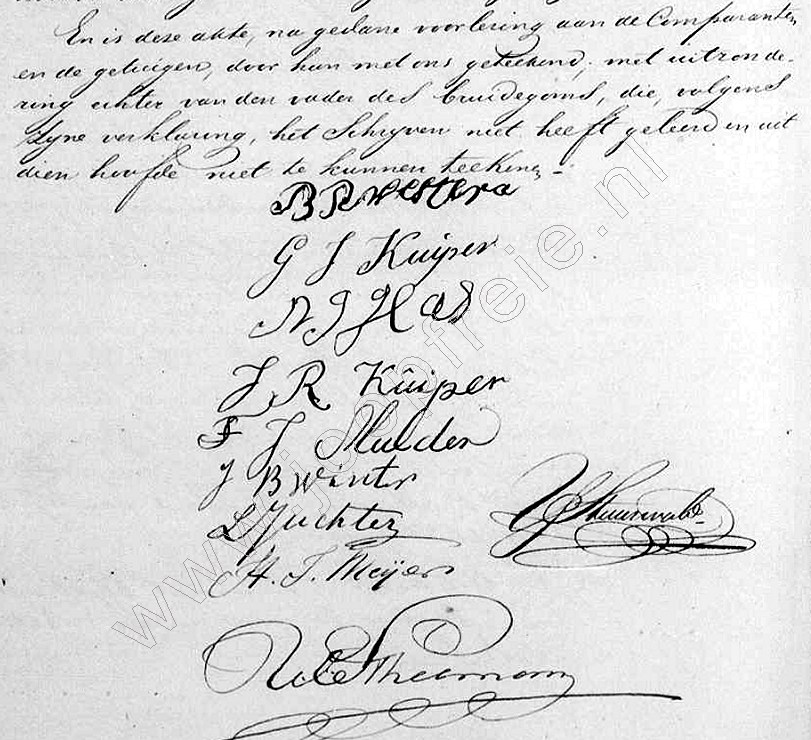 En is deze akte, na gedane voorlezing aan de Comparanten
en de getuigen, door hun met ons geteekend, met uitzonde-
ring echter van den vader des bruidegoms, die, volgens
zyne verklaring, het schryven niet heeft geleerd en uit
dien hoofde niet te kunnen teekenen.
B R Westera
G J Kuijper
N J Glas
J R Kuiper
F J Mulder
J B Winter
L Juchter
H. J. Meijer
www.jipopfreie.nl